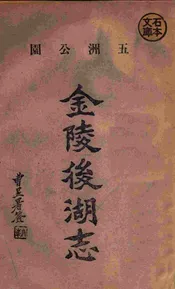 石本
文庫
園公洲五
金陵後湖志
曹昆署簽